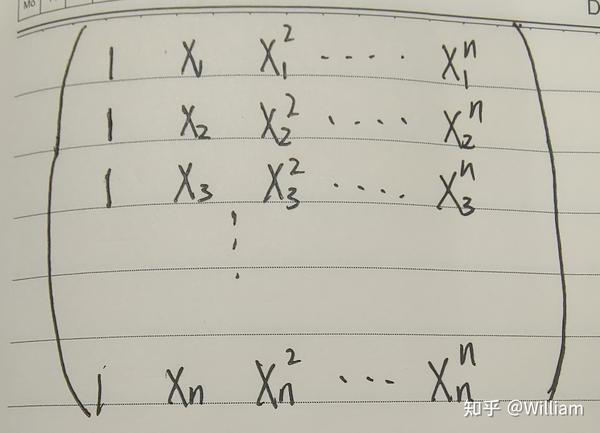 1 X₁ X₁² ···· X₁ⁿ
1 X₂ X₂² ···· X₂ⁿ
1 X₃ X₃² ···· X₃ⁿ
⋮
1 Xₙ Xₙ² ··· Xₙⁿ
知乎 @William